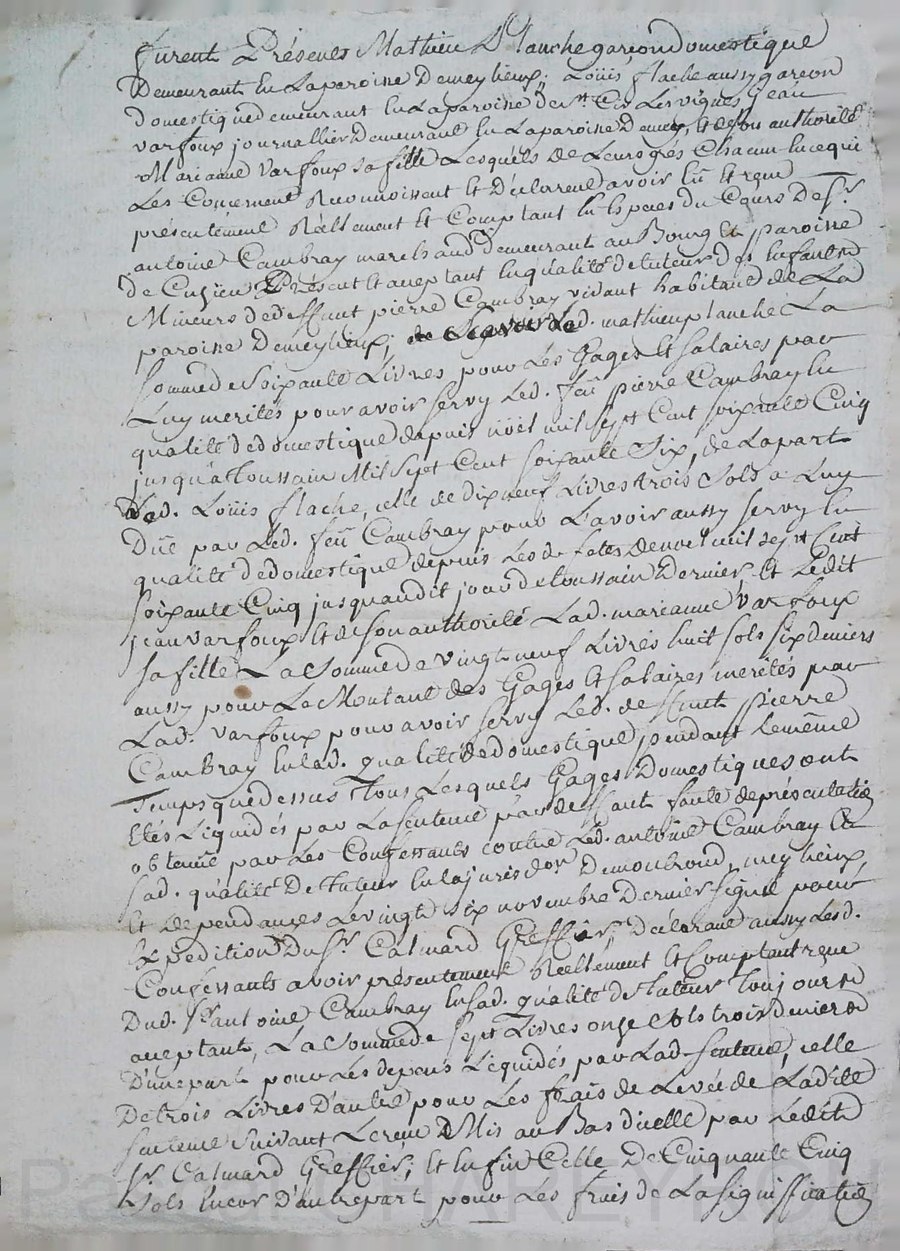 furent Présents Mathieu Planche garçon domestique
Demeurant En La paroisse De meylieux; Loüis flache aussy garçon
domestique demeurant En La paroisse de st Les vignes, jean
varfoux journallier Demeurant En La paroisse De mey, Et de son authorité
Marianne varfoux sa fille Lesquels de Leurs grés Chacun En ce qui
Les Concernent Reconnoissent Et Déclarent avoir Eü Et reçu
présentement Réellement Et Comptant En Espèces du Cours De Sr
antoine Cambray marchand demeurant au Bourg Et paroisse
de Cuzieu Présent Et aceptant En qualité de tuteur des Enfants
Mineurs de deffunt pierre Cambray vivant habitant de La
paroisse De meylieux; Led. mathieu planche La
somme de Soixante Livres pour Les Gages Et salaires par
Luy merités pour avoir servy Led. feü Pierre Cambray En
qualité de domestique depuis noël mil sept Cent soixante Cinq
jusqu'a toussaint Mil Sept Cent soixante Six, de La part
dud. Loüis flache, celle de dix neuf Livres trois Sols a Luy
Düe par Led. feü Cambray pour L'avoir aussy servy En
qualité de domestique depuis Les de fetes de noel mil sept Cent
soixante Cinq jusqu'audit jour de toussaint Dernier, Et Ledit
jean varfoux Et de son authorité Lad. marianne varfoux
sa fille La Somme de vingt neuf Livres huit sols six deniers
aussy pour Le Montant des Gages Et salaires merités par
Lad. varfoux pour avoir servy Led. deffunt Pierre
Cambray En lad. qualité de domestique pendant le même
Temps que dessus Tous Lesquels Gages Domestiques ont
Etés Liquidés par La sentence par deffaut faute de présentation
obtenüe par Les Confessants contre Led. antoine Cambray En
sad. qualité De tuteur En la jurisdon De monbrond, meylieux,
Et dependances Le vingt six novembre Dernier signé pour
Expédition Du Sr Calmard Greffier, Déclarant aussy Lesd.
Confessants avoir présentement Réellement Et Comptant reçu
Dud. Sr antoine Cambray En Sad. qualité de tuteur Toujours
aceptant, La Somme de sept Livres onze Sols trois deniers
D'une part pour Les depens Liquidés par Lad. sentence, celle
De trois Livres D'autre pour Les fraïs de Levée de Ladite
sentence suivant Le reçu Mis au Bas D'icelle par Ledit
Sr Calmard Greffier; Et En fin Celle De Cinquante Cinq
Sols Encor D'autre part pour Les frais de La signiffication